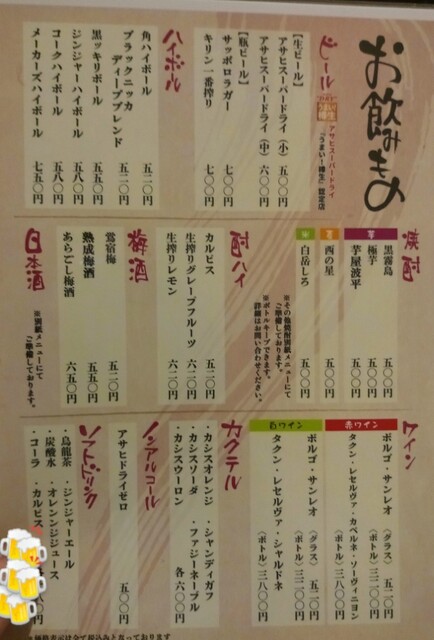 お飲みもの
ビール
アサヒスーパードライ
「うまい!樽生」認定店
【生ビール】
アサヒスーパードライ(小) 五〇〇円
アサヒスーパードライ(中) 六〇〇円
【瓶ビール】
サッポロラガー 七〇〇円
キリン一番搾り 七〇〇円
ハイボール
角ハイボール 五二〇円
ブラックニッカ
ディープブレンド 五二〇円
黒ッキリボール 五五〇円
ジンジャーハイボール 五八〇円
コークハイボール 五八〇円
メーカーズハイボール 七五〇円
焼酎
芋
黒霧島 五〇〇円
極芋 五〇〇円
芋屋波平 五〇〇円
麦
西の星 五〇〇円
米
白岳しろ 五〇〇円
※その他焼酎別紙メニューにて
ご準備しております。
※ボトルキープできます。
詳細はお問い合わせください。
酎ハイ
カルピス 五二〇円
生搾りグレープフルーツ 六二〇円
生搾りレモン 六二〇円
梅酒
鶯宿梅 五二〇円
熟成梅酒 五五〇円
あらごし梅酒 六五〇円
日本酒
※別紙メニューにて
ご準備しております。
ワイン
赤ワイン
ボルゴ・サンレオ (グラス) 五二〇円
(ボトル) 三二〇〇円
タクン・レセルヴァ・カベルネ・ソーヴィニヨン
(ボトル) 三八〇〇円
白ワイン
ボルゴ・サンレオ (グラス) 五二〇円
(ボトル) 三二〇〇円
タクン・レセルヴァ・シャルドネ
(ボトル) 三八〇〇円
カクテル
・カシスオレンジ ・シャンディガフ
・カシスソーダ ・ファジーネーブル
・カシスウーロン 各六〇〇円
ノンアルコール
アサヒドライゼロ 五〇〇円
ソフトドリンク
・烏龍茶 ・ジンジャーエール
・炭酸水 ・オレンジジュース
・コーラ ・カルピス